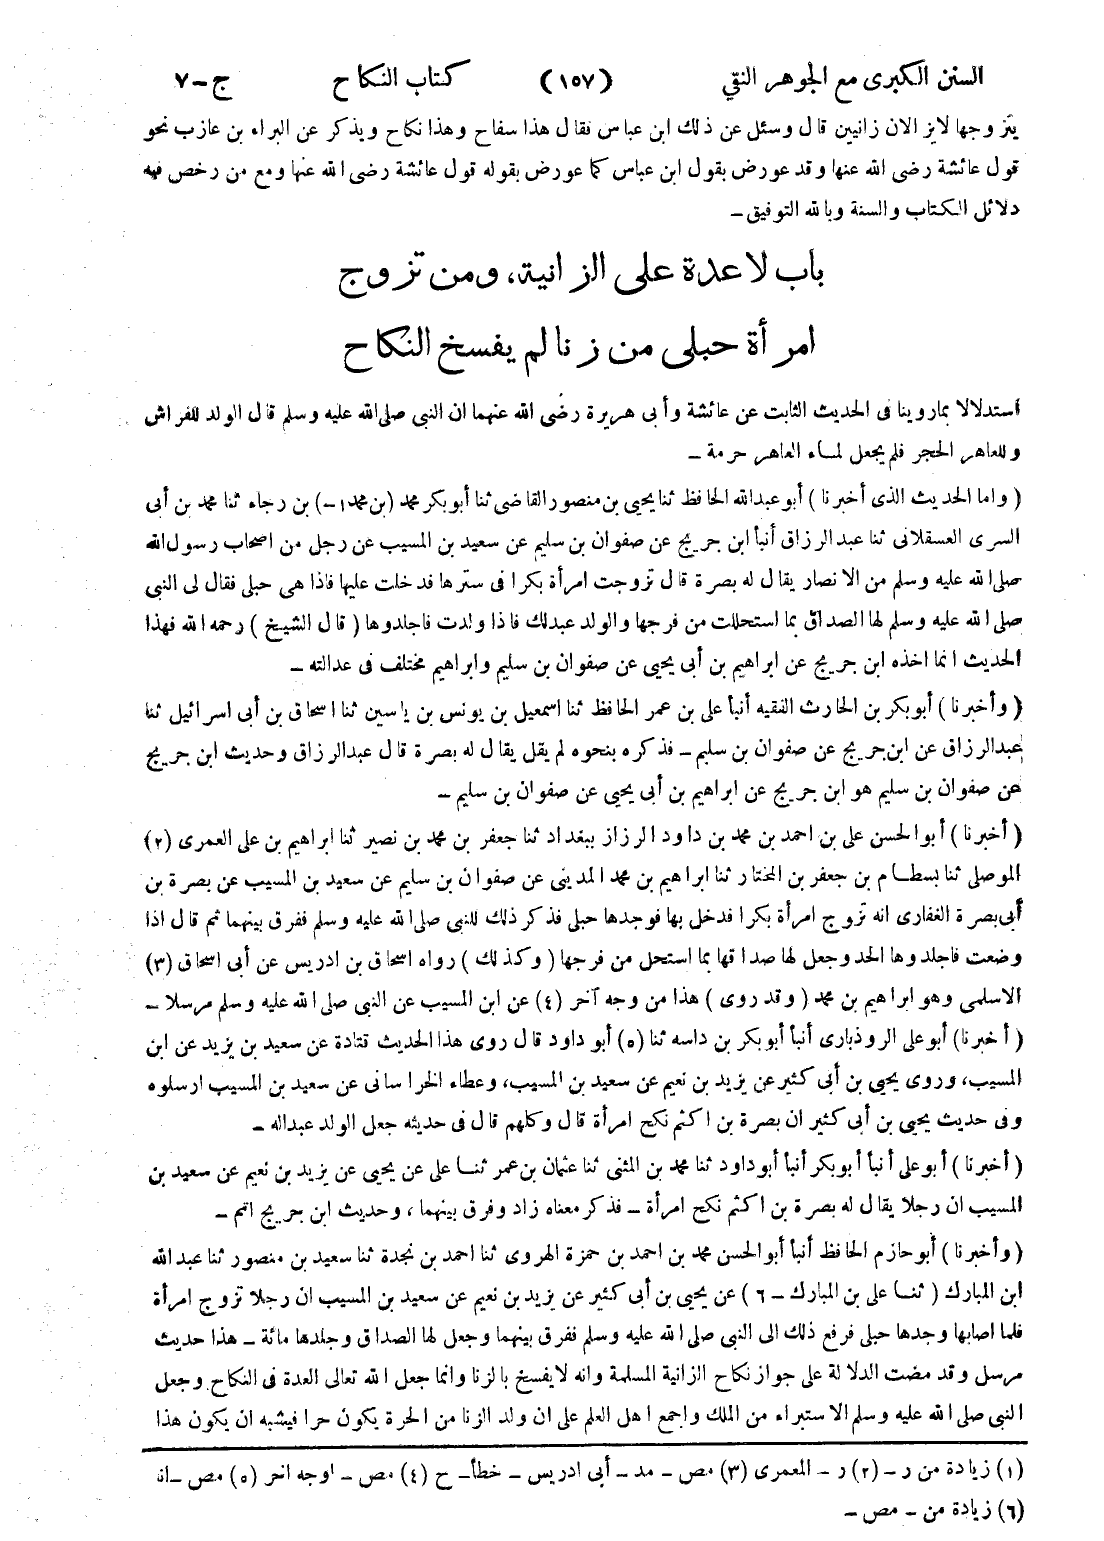 السنن الكبرى مع الجوهر النقي (١٥٧) كتاب النكاح ج-٧
يتزوجها لايزالان زانيين قال وسئل عن ذلك ابن عباس فقال هذا سفاح وهذا نكاح ويذكر عن البراء بن عازب نحو
قول عائشة رضى الله عنها وقد عورض بقول ابن عباس كما عورض بقوله قول عائشة رضى الله عنها ومع من رخص فيه
دلائل الكتاب والسنة وبالله التوفيق -
باب لاعدة على الزانية، ومن تزوج
امرأة حبلى من زنا لم يفسخ النكاح
استدلالا بماروينا فى الحديث الثابت عن عائشة وأبى هريرة رضى الله عنهما ان النبى صلى الله عليه وسلم قال الولد للفراش
وللعاهر الحجر فلم يجعل لماء العاهر حرمة -
(واما الحديث الذى أخبرنا) أبوعبدالله الحافظ ثنا يحيى بن منصور القاضى ثنا أبوبكر محمد (بن محمد١-) بن رجاء ثنا محمد بن أبى
السرى العسقلانى ثنا عبدالرزاق أنبأ ابن جريج عن صفوان بن سليم عن سعيد بن المسيب عن رجل من اصحاب رسول الله
صلى الله عليه وسلم من الانصار يقال له بصرة قال تزوجت امرأة بكرا فى سترها فدخلت عليها فاذا هى حبلى فقال لى النبى
صلى الله عليه وسلم لها الصداق بما استحللت من فرجها والولد عبدلك فاذا ولدت فاجلدوها (قال الشيخ) رحمه الله فهذا
الحديث انما اخذه ابن جريج عن ابراهيم بن أبى يحيى عن صفوان بن سليم وابراهيم مختلف فى عدالته -
(وأخبرنا) أبوبكر بن الحارث الفقيه أنبأ على بن عمر الحافظ ثنا اسمعيل بن يونس بن ياسين ثنا اسحاق بن أبى اسرائيل ثنا
عبدالرزاق عن ابن جريج عن صفوان بن سليم - فذكره بنحوه لم يقل يقال له بصرة قال عبدالرزاق وحديث ابن جريج
عن صفوان بن سليم هو ابن جريج عن ابراهيم بن أبى يحيى عن صفوان بن سليم -
(أخبرنا) أبوالحسن على بن احمد بن محمد بن داود الرزاز ببغداد ثنا جعفر بن محمد بن نصير ثنا ابراهيم بن على العمرى (٢)
الموصلى ثنا بسطام بن جعفر بن المختار ثنا ابراهيم بن محمد المدينى عن صفوان بن سليم عن سعيد بن المسيب عن بصرة بن
أبى بصرة الغفارى انه تزوج امرأة بكرا فدخل بها فوجدها حبلى فذكر ذلك للنبى صلى الله عليه وسلم ففرق بينهما ثم قال اذا
وضعت فاجلدوها الحد وجعل لها صداقها بما استحل من فرجها (وكذلك) رواه اسحاق بن ادريس عن أبى اسحاق (٣)
الاسلمى وهو ابراهيم بن محمد (وقد روى) هذا من وجه آخر (٤) عن ابن المسيب عن النبى صلى الله عليه وسلم مرسلا -
(أخبرنا) أبوعلى الروذبارى أنبأ أبوبكر بن داسه ثنا (٥) أبو داود قال روى هذا الحديث قتادة عن سعيد بن يزيد عن ابن
المسيب، وروى يحيى بن أبى كثير عن يزيد بن نعيم عن سعيد بن المسيب، وعطاء الخراسانى عن سعيد بن المسيب ارسلوه
وفى حديث يحيى بن أبى كثير ان بصرة بن اكثم نكح امرأة قال وكلهم قال فى حديثه جعل الولد عبداله -
(أخبرنا) أبوعلى أنبأ أبوبكر أنبأ أبوداود ثنا محمد بن المثنى ثنا عثمان بن عمر ثنا على عن يحيى عن يزيد بن نعيم عن سعيد بن
المسيب ان رجلا يقال له بصرة بن اكثم نكح امرأة - فذكر معناه زاد وفرق بينهما، وحديث ابن جريج اتم -
(وأخبرنا) أبوحازم الحافظ أنبأ أبوالحسن محمد بن احمد بن حمزة الهروى ثنا احمد بن نجدة ثنا سعيد بن منصور ثنا عبدالله
ابن المبارك (ثنا على بن المبارك - ٦) عن يحيى بن أبى كثير عن يزيد بن نعيم عن سعيد بن المسيب ان رجلا تزوج امرأة
فلما اصابها وجدها حبلى فرفع ذلك الى النبى صلى الله عليه وسلم ففرق بينهما وجعل لها الصداق وجلدها مائة - هذا حديث
مرسل وقد مضت الدلالة على جواز نكاح الزانية المسلمة وانه لايفسخ بالزنا وانما جعل الله تعالى العدة فى النكاح وجعل
النبى صلى الله عليه وسلم الاستبراء من الملك واجمع اهل العلم على ان ولد الزنا من الحرة يكون حرا فيشبه ان يكون هذا
(١) زيادة من ر - (٢) ر - المعمرى (٣) مص - مد - أبى ادريس - خطأ - ح (٤) مص - اوجه اخر (٥) مص - انا
(٦) زيادة من - مص -